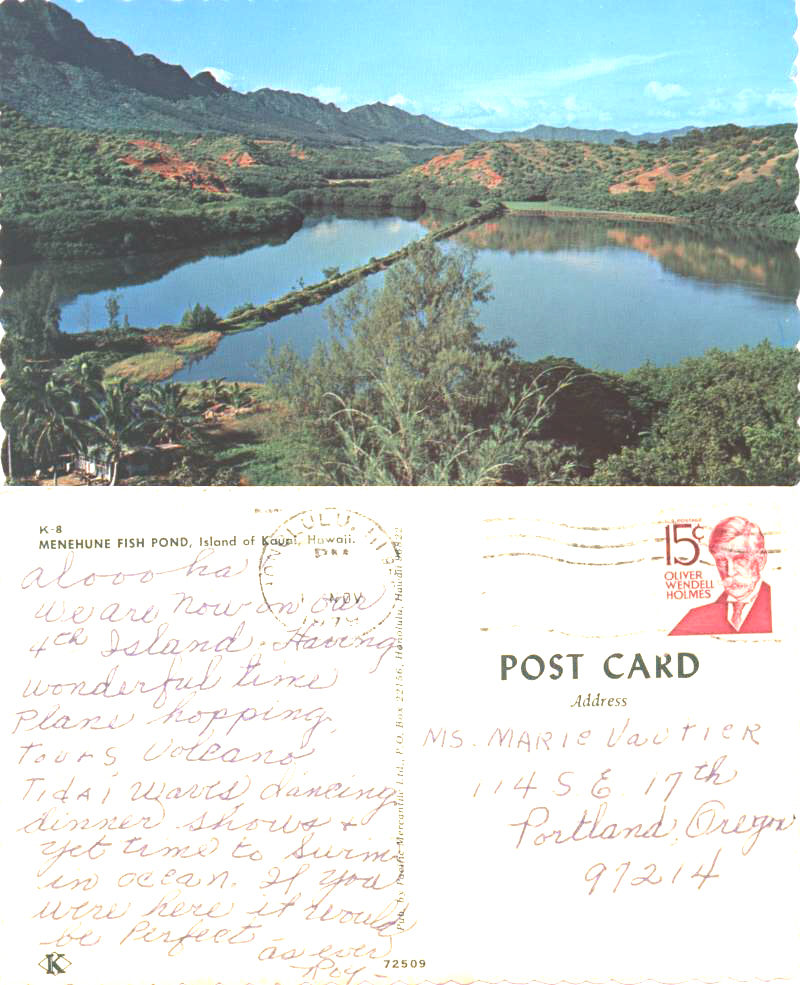 K-8
MENEHUNE FISH POND, Island of Kauai, Hawaii.
HONOLULU, HI
NOV
U.S. POSTAGE
15¢
OLIVER
WENDELL
HOLMES
aloooha
we are now on our
4th Island. Having
wonderful time
Plane hopping,
Tours Volcano
Tidal waves, dancing
dinner shows +
yet time to swim
in ocean. If you
were here it would
be Perfect
as ever
Roy -
Pub. by Pacific Mercantile Ltd., P.O. Box 22156, Honolulu, Hawaii 96822
POST CARD
Address
MS. MARIE VAUTIER
114 S E. 17th
Portland, Oregon
97214
K
72509